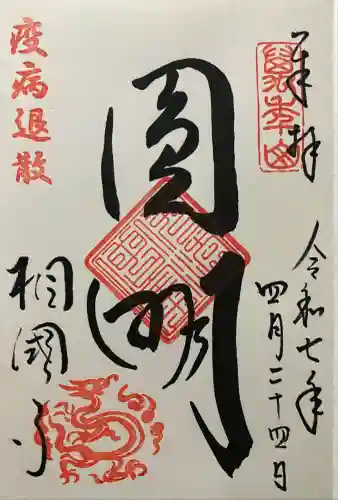 奉拝
令和七年
四月二十四日
圓明
疫病退散
相國寺
萬年山